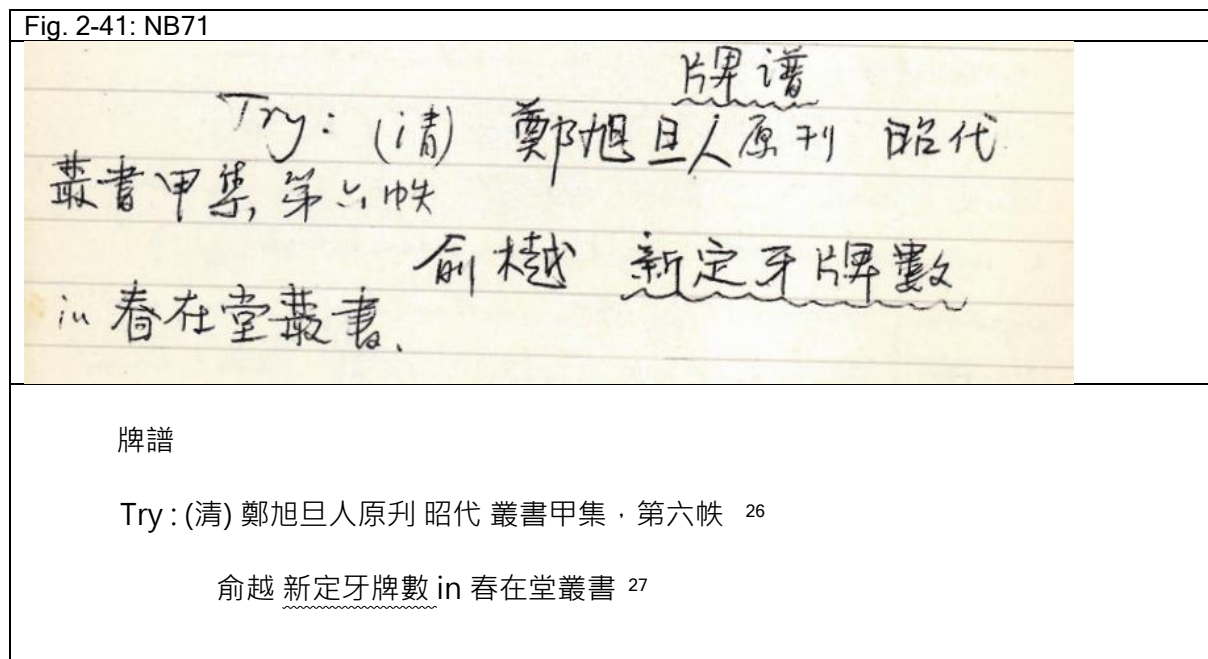 Fig. 2-41: NB71
牌谱
Try: (清) 鄭旭旦人原刊 昭代
叢書甲集, 第六帙
俞樾 新定牙牌數
in 春在堂叢書.
牌譜
Try : (清) 鄭旭旦人原刋 昭代 叢書甲集，第六帙 26
俞越 新定牙牌數 in 春在堂叢書 27